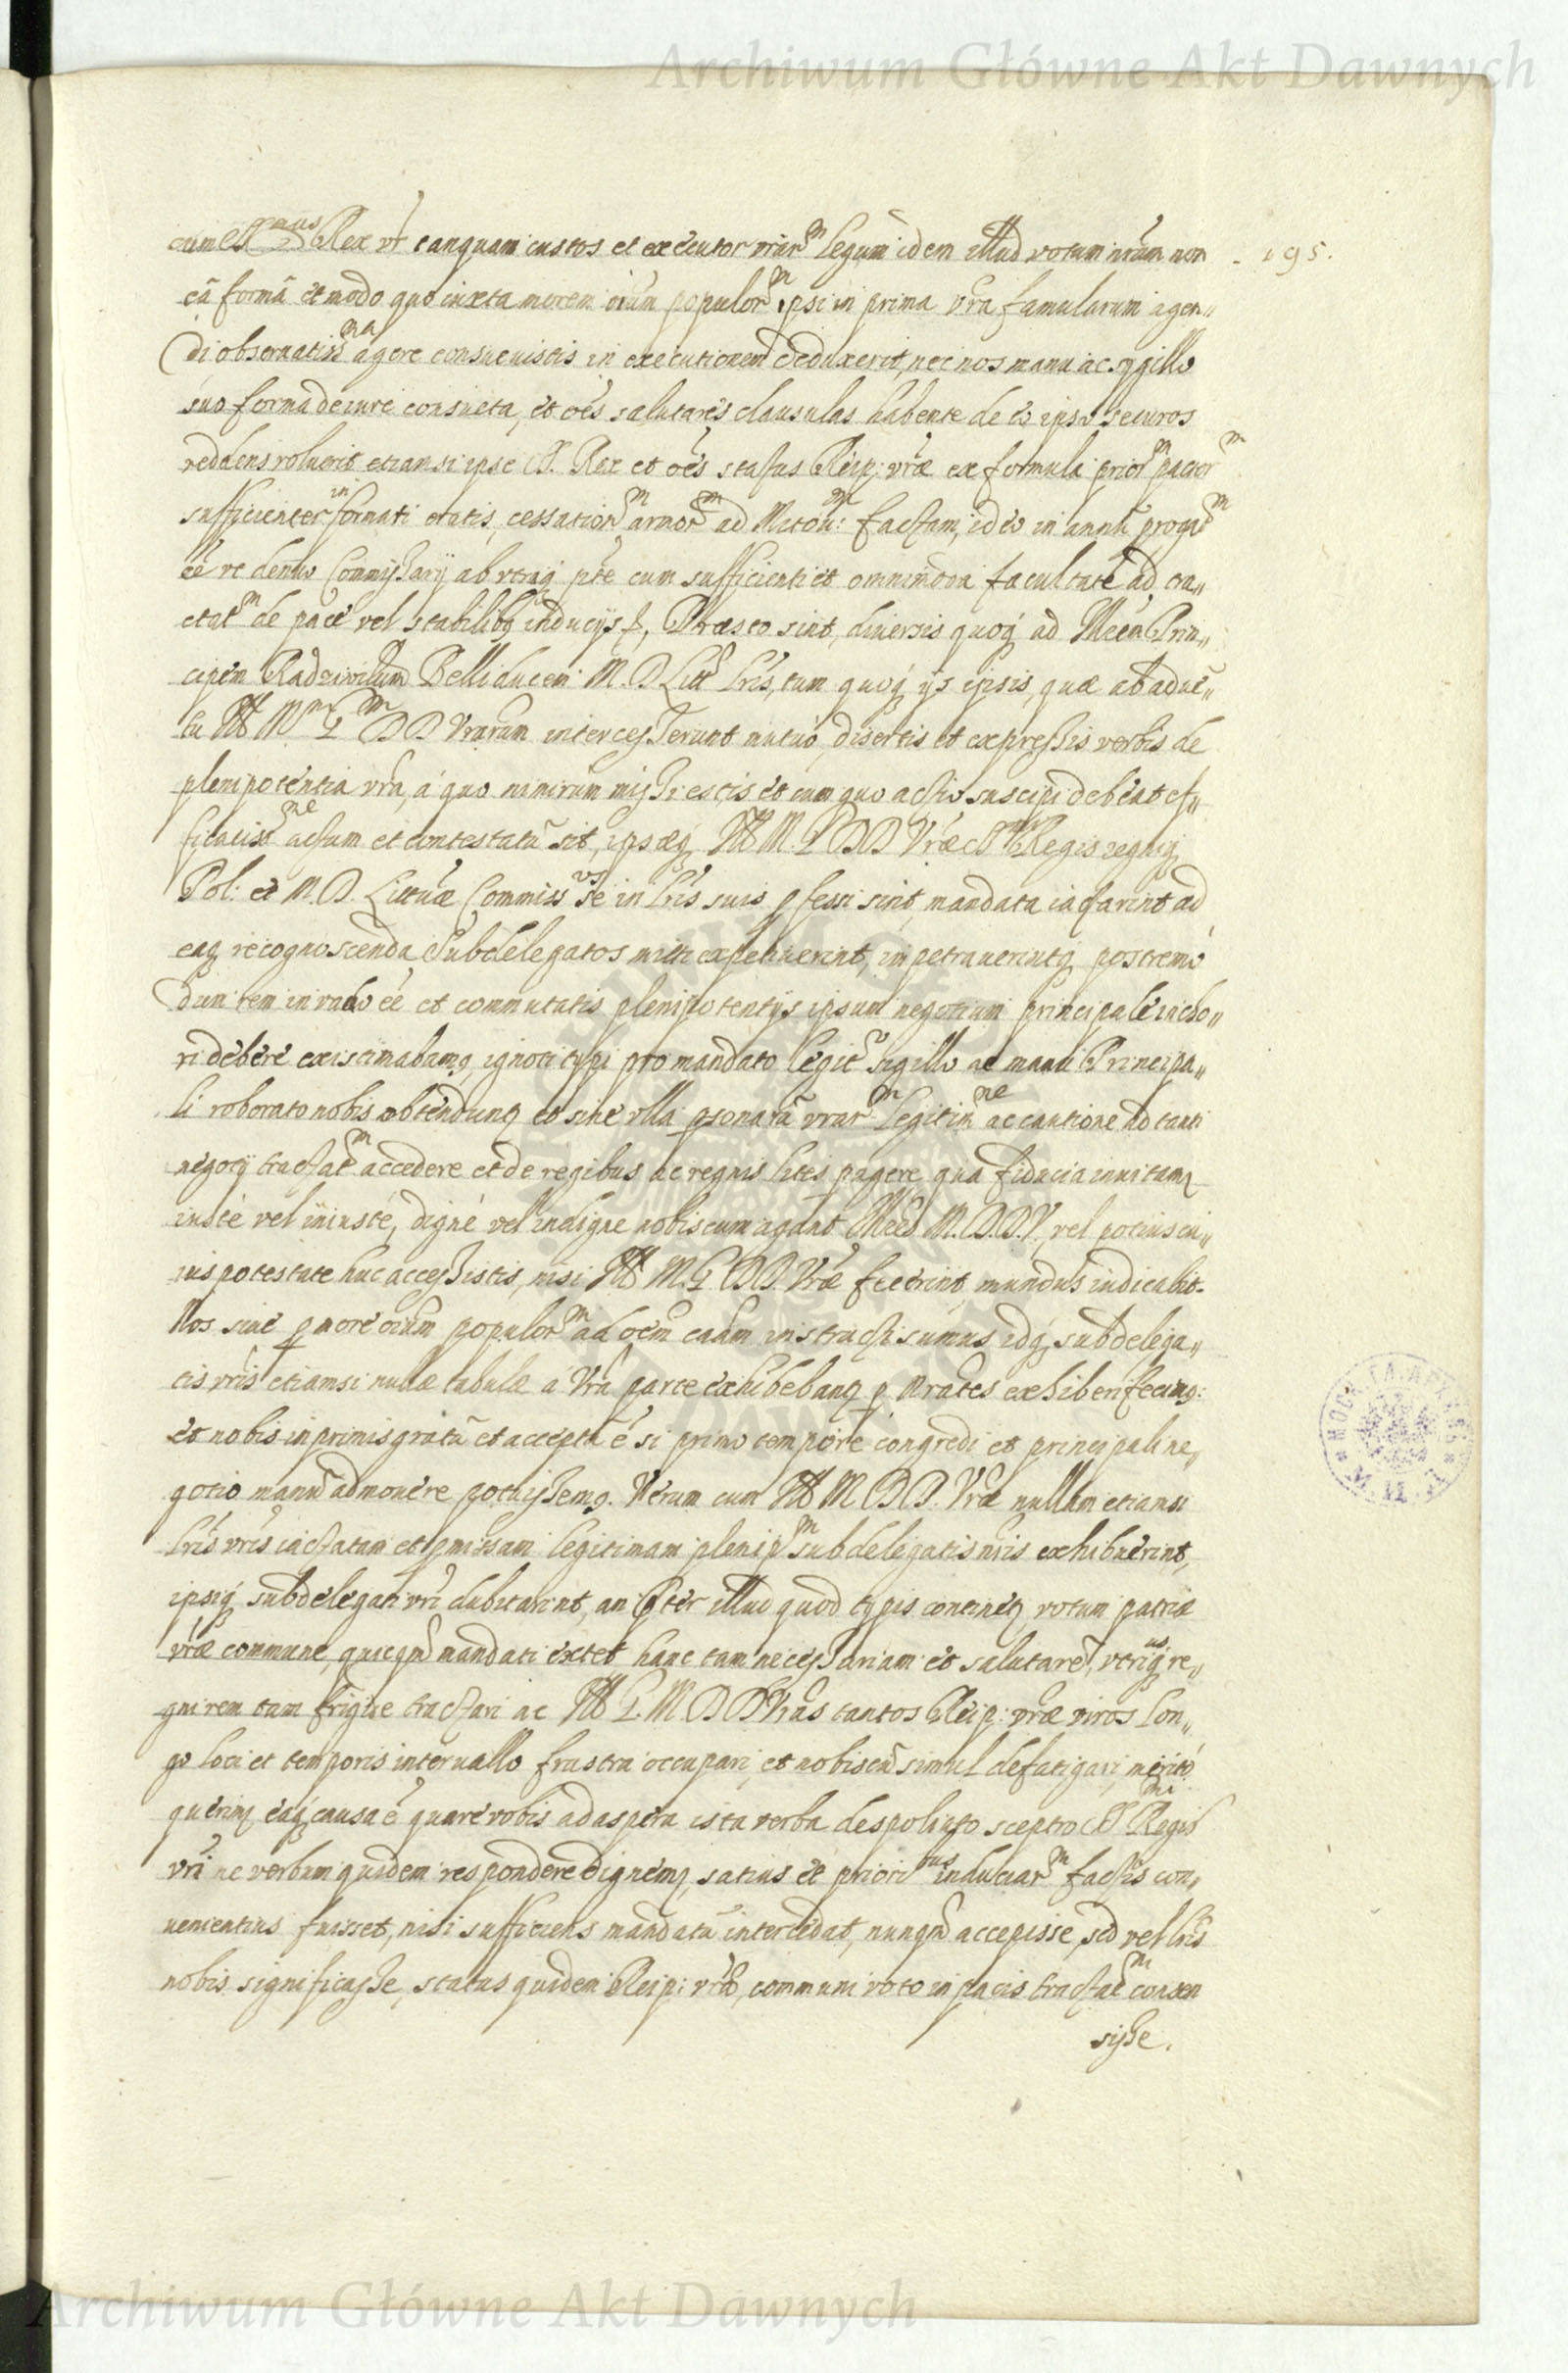 Archiwum Główne Akt Dawnych
cum Rex vr̃ tanquam custos et executor vrãr^m legum idem illud votum nrũm non
195.
eâ formâ et modo quo iuxta morem oĩum populor^m ipsi in prima vrã famularum agen„
di obseruatiss^ma agere consueuistis in executionem deduxerit, nec nos manu ac sygillo
suo forma de iure consueta, et oẽs salutares clausulas habente de eo ipso securos
reddens voluerit etiamsi ipse S. Rex et oẽs status Reip: vrãe ex formula prior^m pactor^m
sufficienter informati eratis, cessation^m armor^m ad factam, ideo in annũ
eẽ vt denuo Commissarij ab vtraq; pte cum sufficienti et omnimoda facultate ad tra„
ctat^m de pace vel stabilibq inducijs Praesto sint, diuersis quoq; ad Prin„
cipem Radziwilum Belli ducem M. D. Litt lrĩs, tum quoq; ijs ipsis, quae ab aduẽ„
tu M DD Vrarum intercesserunt mutuo, disertis et expressis verbis de
plenipotentia vrã, á quo nimirum missi estis et cum quo actio suscipi debeat ef„
ficaciss^ne actum et contestatũ sit, ipsaeq; M. DD Vrãe Regis regniq;
Pol: et M. D. Littuae Commiss^os se in lrĩs suis pfessi sint, mandata iactarint ad
eaq; recognoscenda Subdelegatos mitti expetiuerint, impetrauerintq; postremo
dum rem in vado eẽ et commutatis plenipotentijs ipsum negotium principale incho„
ri debere existimabamq, ignoti typi pro mandato legit sigillo ac manu Principa„
li roborato nobis obtendunt et sine vlla psonarũ vrar^m legitim^ne ac cautione ad tanti
negotij tractat^m accedere et de regibus ac regnis lites pagere qua fiducia inuitam
iuste vel iniuste, digne vel indigne nobiscum agant M. D. D. V. vel potius cu„
ius potestate huc accessistis, nisi M. G. DD. Vrãe fecerint, mundus indicabit.
Nos sine p more oĩum populor^m ad oẽm eũm instructi sumus idq; subdelega„
tis vrĩs etiamsi nullae tabulae á Vrã parte exhibebant p Nrates exhiberi fecimq:
et nobis in primis gratũ et acceptũ ẽ si primo tempore congredi et principali ne„
gotio manũ admouere potuissemq. Verum cum M DD. Vrãe nullam etiamsi
lrĩs vrĩs iactatam et pmissam legitimam plenip^m subdelegatis nrĩs exhibuerint,
ipsiq; subdelegati vrĩ dubitarint, an pter illud quod typis continet votum patriae
vrãe commune, quicqũ mandati extet hanc tam necessariam et salutarẽ, vtriusq re„
gni rem tam frigide tractari ac G. M DD Vras tantos Reip: vrãe viros lon„
go loci et temporis interuallo frustra occupari, et nobiscũ simul defatigari, merito
querimq eaq; causa ẽ quare vobis ad aspera ista verba despoliato sceptro S^mi Regis
vrĩ ne verbum quidem respondere dignemq, satius et priori^bus induciar^m factis con„
uenientius fuisset, nisi sufficiens mandatũ intercedat, nunqũ accepisse, sed vel lrĩs
nobis significasse, status quidem Reip: vrãe, communi voto in pacis tractat^m consen
sisse.
Archiwum Główne Akt Dawnych